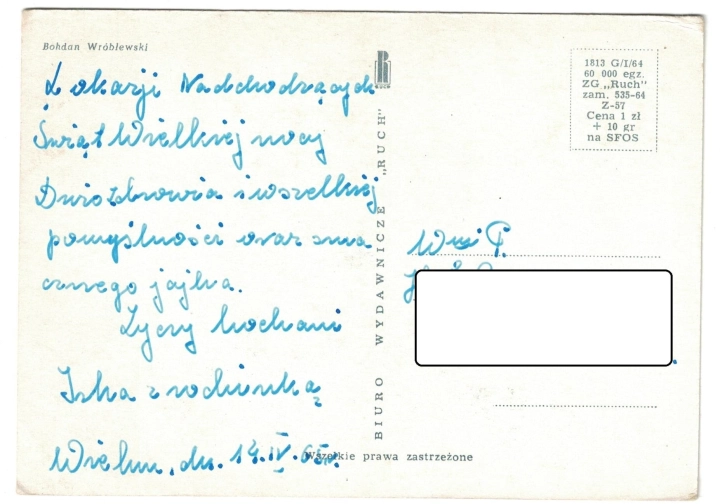 Bohdan Wróblewski
Z okazji Nadchodzących
Świąt Wielkiej nocy
Dużo Zdrowia i wszelkiej
pomyślności oraz sma
cznego jajka.
Życzy kochani
z rodzinką
dn. 14.IV.65r.
BIURO WYDAWNICZE „RUCH"
RUCH
1813 G/I/64
60 000 egz.
ZG „Ruch"
zam. 535-64
Z-57
Cena 1 zł
+ 10 gr
na SFOS
P.
Wszelkie prawa zastrzeżone